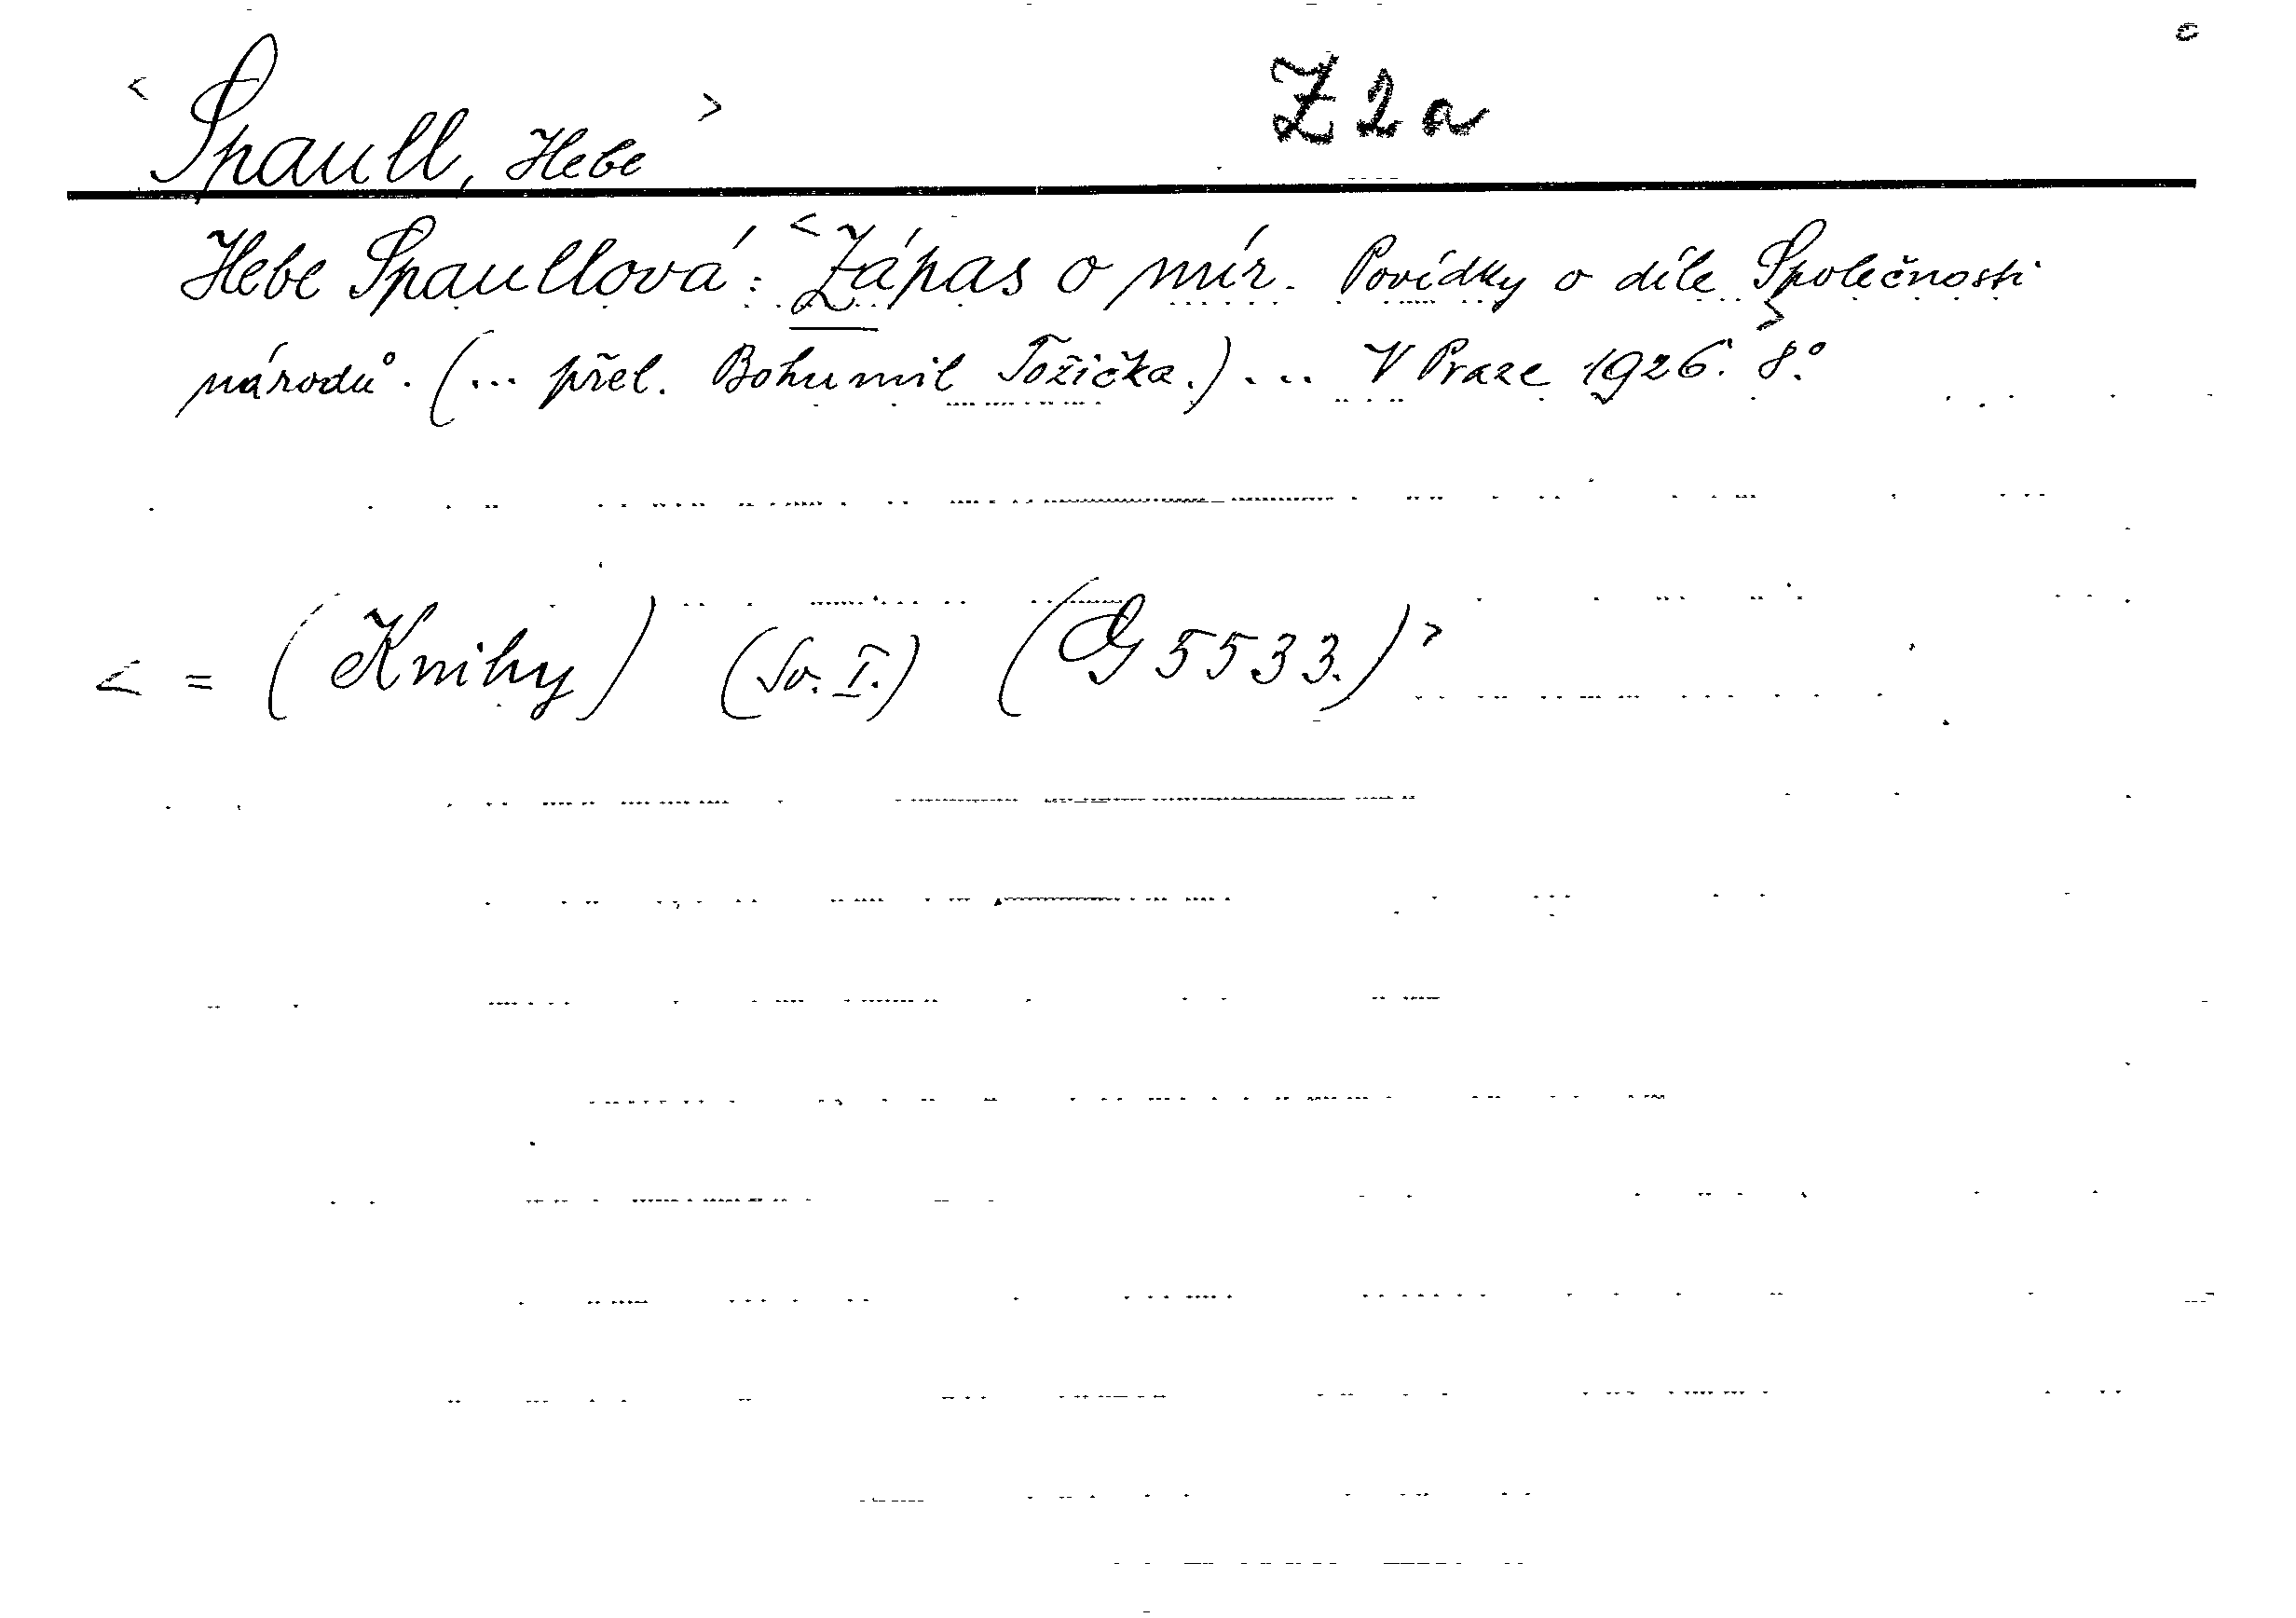 < Spaull, Hebe > Z 2 a
Hebe Spaullová: < Zápas o mír. Povídky o díle Společnosti
národů. > (... přel. Bohumil Tožička.) ... V Praze 1926. 8°.
< = (Knihy) (Sv. I.) (G 5533.) >